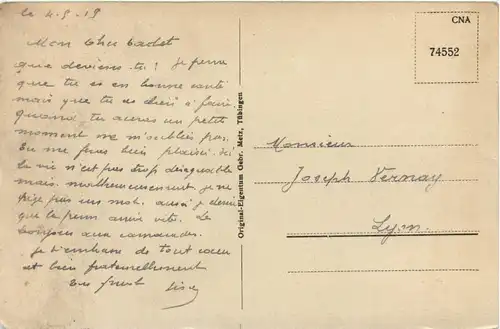 le 4-9-19
Mon Cher Cadet
que deviens-tu! Je pense
que tu es en bonne santé
mais que tu as à faire.
Quand tu auras un petit
moment ne m'oublies pas.
Tu me feras bien plaisir. Ici
la vie n'est pas trop désagréable
mais malheureusement je ne
pige pas un mot. aussi je désire
que le temps vite. Le
bonjour aux camarades.
Je t'embrasse de tout cœur
et bien fraternellement
Ton
CNA
74552
Original-Eigentum Gebr. Metz, Tübingen
Monsieur
Joseph Vernay
Lyon